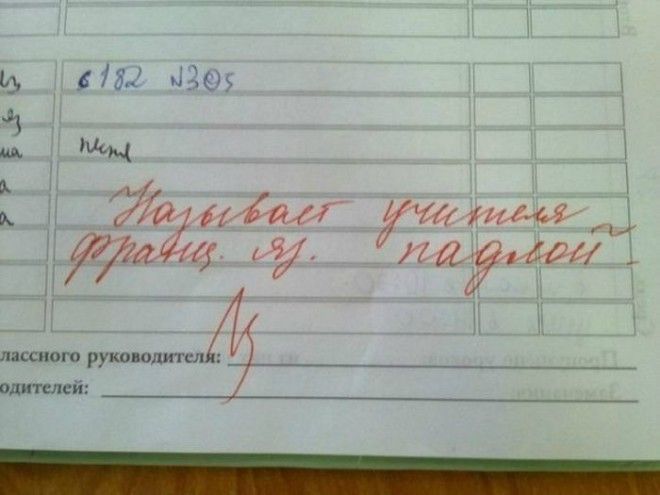 с 182 N3@5
Называет учителя
франц. яз. падлой
лассного руководителя:
одителей: